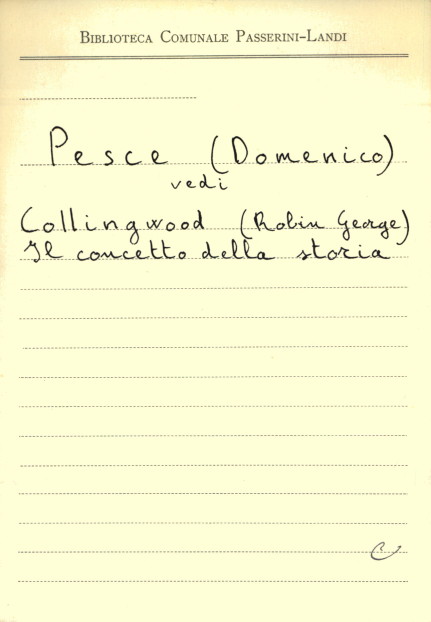 BIBLIOTECA COMUNALE PASSERINI-LANDI
Pesce (Domenico)
vedi
Collingwood (Robin George)
Il concetto della storia